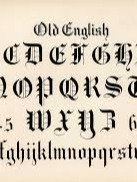 Old English
C D E F G H
O P Q R S T
-5 W X Y Z 6
fghijklmnopqrst